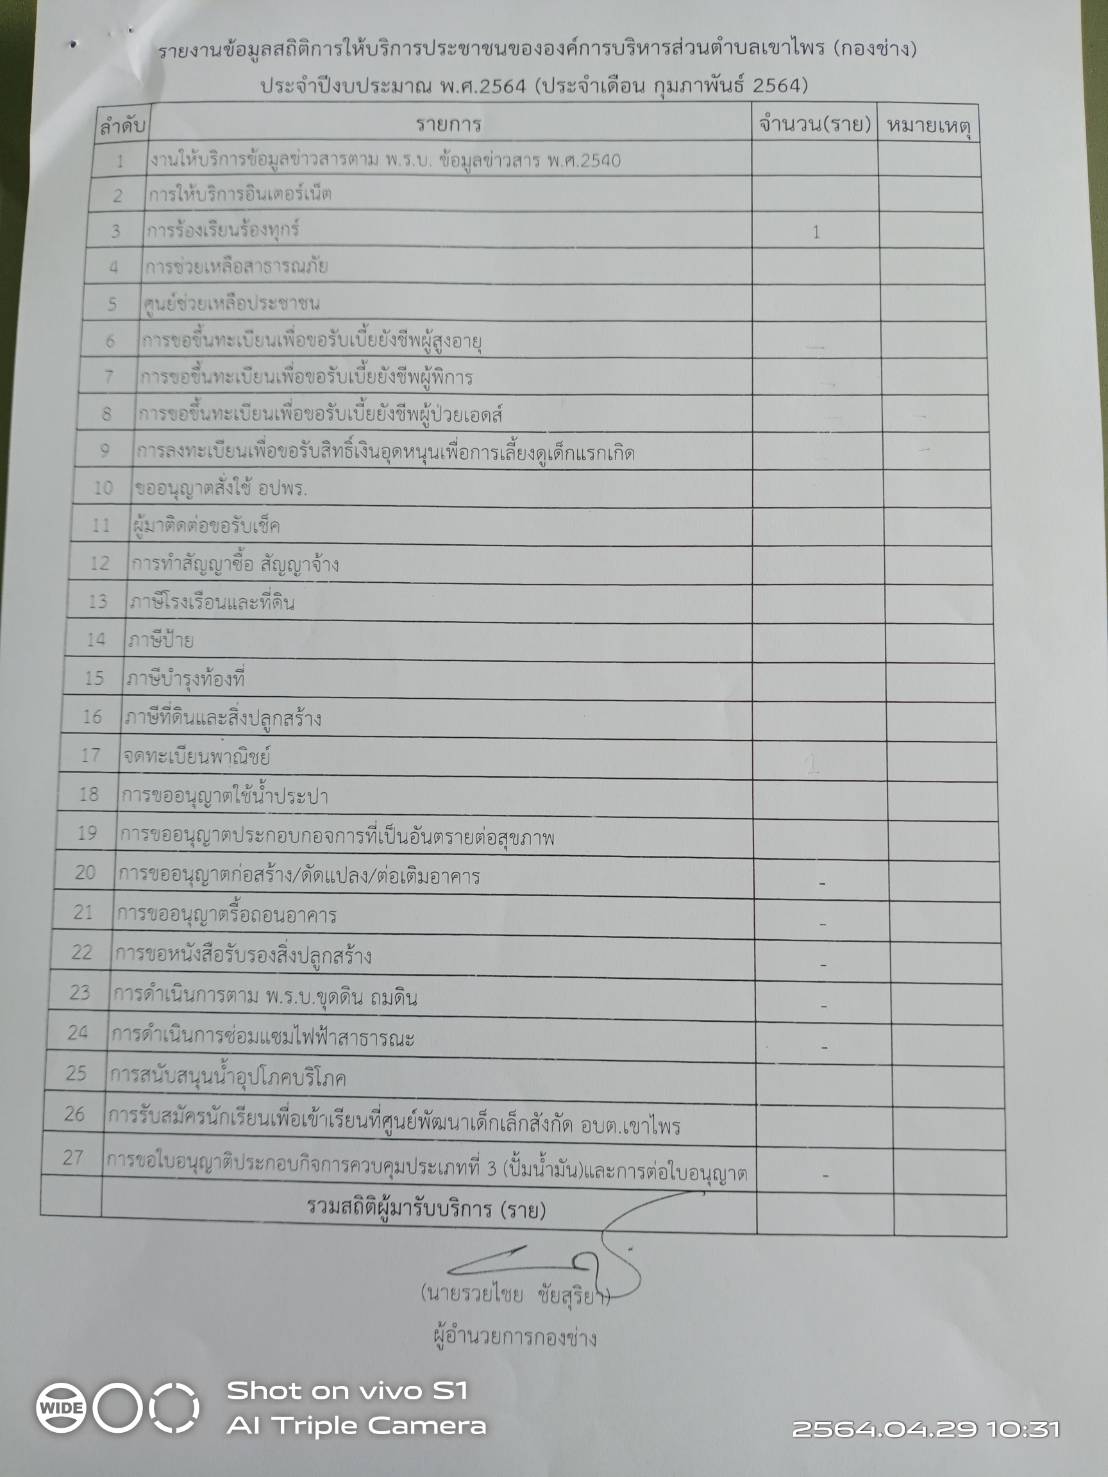 รายงานข้อมูลสถิติการให้บริการประชาชนขององค์การบริหารส่วนตำบลเขาไพร (กองช่าง)
ประจำปีงบประมาณ พ.ศ.2564 (ประจำเดือน กุมภาพันธ์ 2564)
ลำดับ รายการ จำนวน(ราย) หมายเหตุ
1 งานให้บริการข้อมูลข่าวสารตาม พ.ร.บ. ข้อมูลข่าวสาร พ.ศ.2540
2 การให้บริการอินเตอร์เน็ต
3 การร้องเรียนร้องทุกร์ 1
4 การช่วยเหลือสาธารณภัย
5 ศูนย์ช่วยเหลือประชาชน
6 การขอขึ้นทะเบียนเพื่อขอรับเบี้ยยังชีพผู้สูงอายุ
7 การขอขึ้นทะเบียนเพื่อขอรับเบี้ยยังชีพผู้พิการ
8 การขอขึ้นทะเบียนเพื่อขอรับเบี้ยยังชีพผู้ป่วยเอดส์
9 การลงทะเบียนเพื่อขอรับสิทธิ์เงินอุดหนุนเพื่อการเลี้ยงดูเด็กแรกเกิด
10 ขออนุญาตสั่งใช้ อปพร.
11 ผู้มาติดต่อขอรับเช็ค
12 การทำสัญญาซื้อ สัญญาจ้าง
13 ภาษีโรงเรือนและที่ดิน
14 ภาษีป้าย
15 ภาษีบำรุงท้องที่
16 ภาษีที่ดินและสิ่งปลูกสร้าง
17 จดทะเบียนพาณิชย์ 1
18 การขออนุญาตใช้น้ำประปา
19 การขออนุญาตประกอบกอจการที่เป็นอันตรายต่อสุขภาพ
20 การขออนุญาตก่อสร้าง/ดัดแปลง/ต่อเติมอาคาร -
21 การขออนุญาตรื้อถอนอาคาร -
22 การขอหนังสือรับรองสิ่งปลูกสร้าง -
23 การดำเนินการตาม พ.ร.บ.ขุดดิน ถมดิน -
24 การดำเนินการซ่อมแซมไฟฟ้าสาธารณะ -
25 การสนับสนุนน้ำอุปโภคบริโภค
26 การรับสมัครนักเรียนเพื่อเข้าเรียนที่ศูนย์พัฒนาเด็กเล็กสังกัด อบต.เขาไพร
27 การขอใบอนุญาติประกอบกิจการควบคุมประเภทที่ 3 (ปั้มน้ำมัน)และการต่อใบอนุญาต -
รวมสถิติผู้มารับบริการ (ราย)
(นายรวยไชย ชัยสุริยา)
ผู้อำนวยการกองช่าง
WIDE
Shot on vivo S1
AI Triple Camera
2564.04.29 10:31